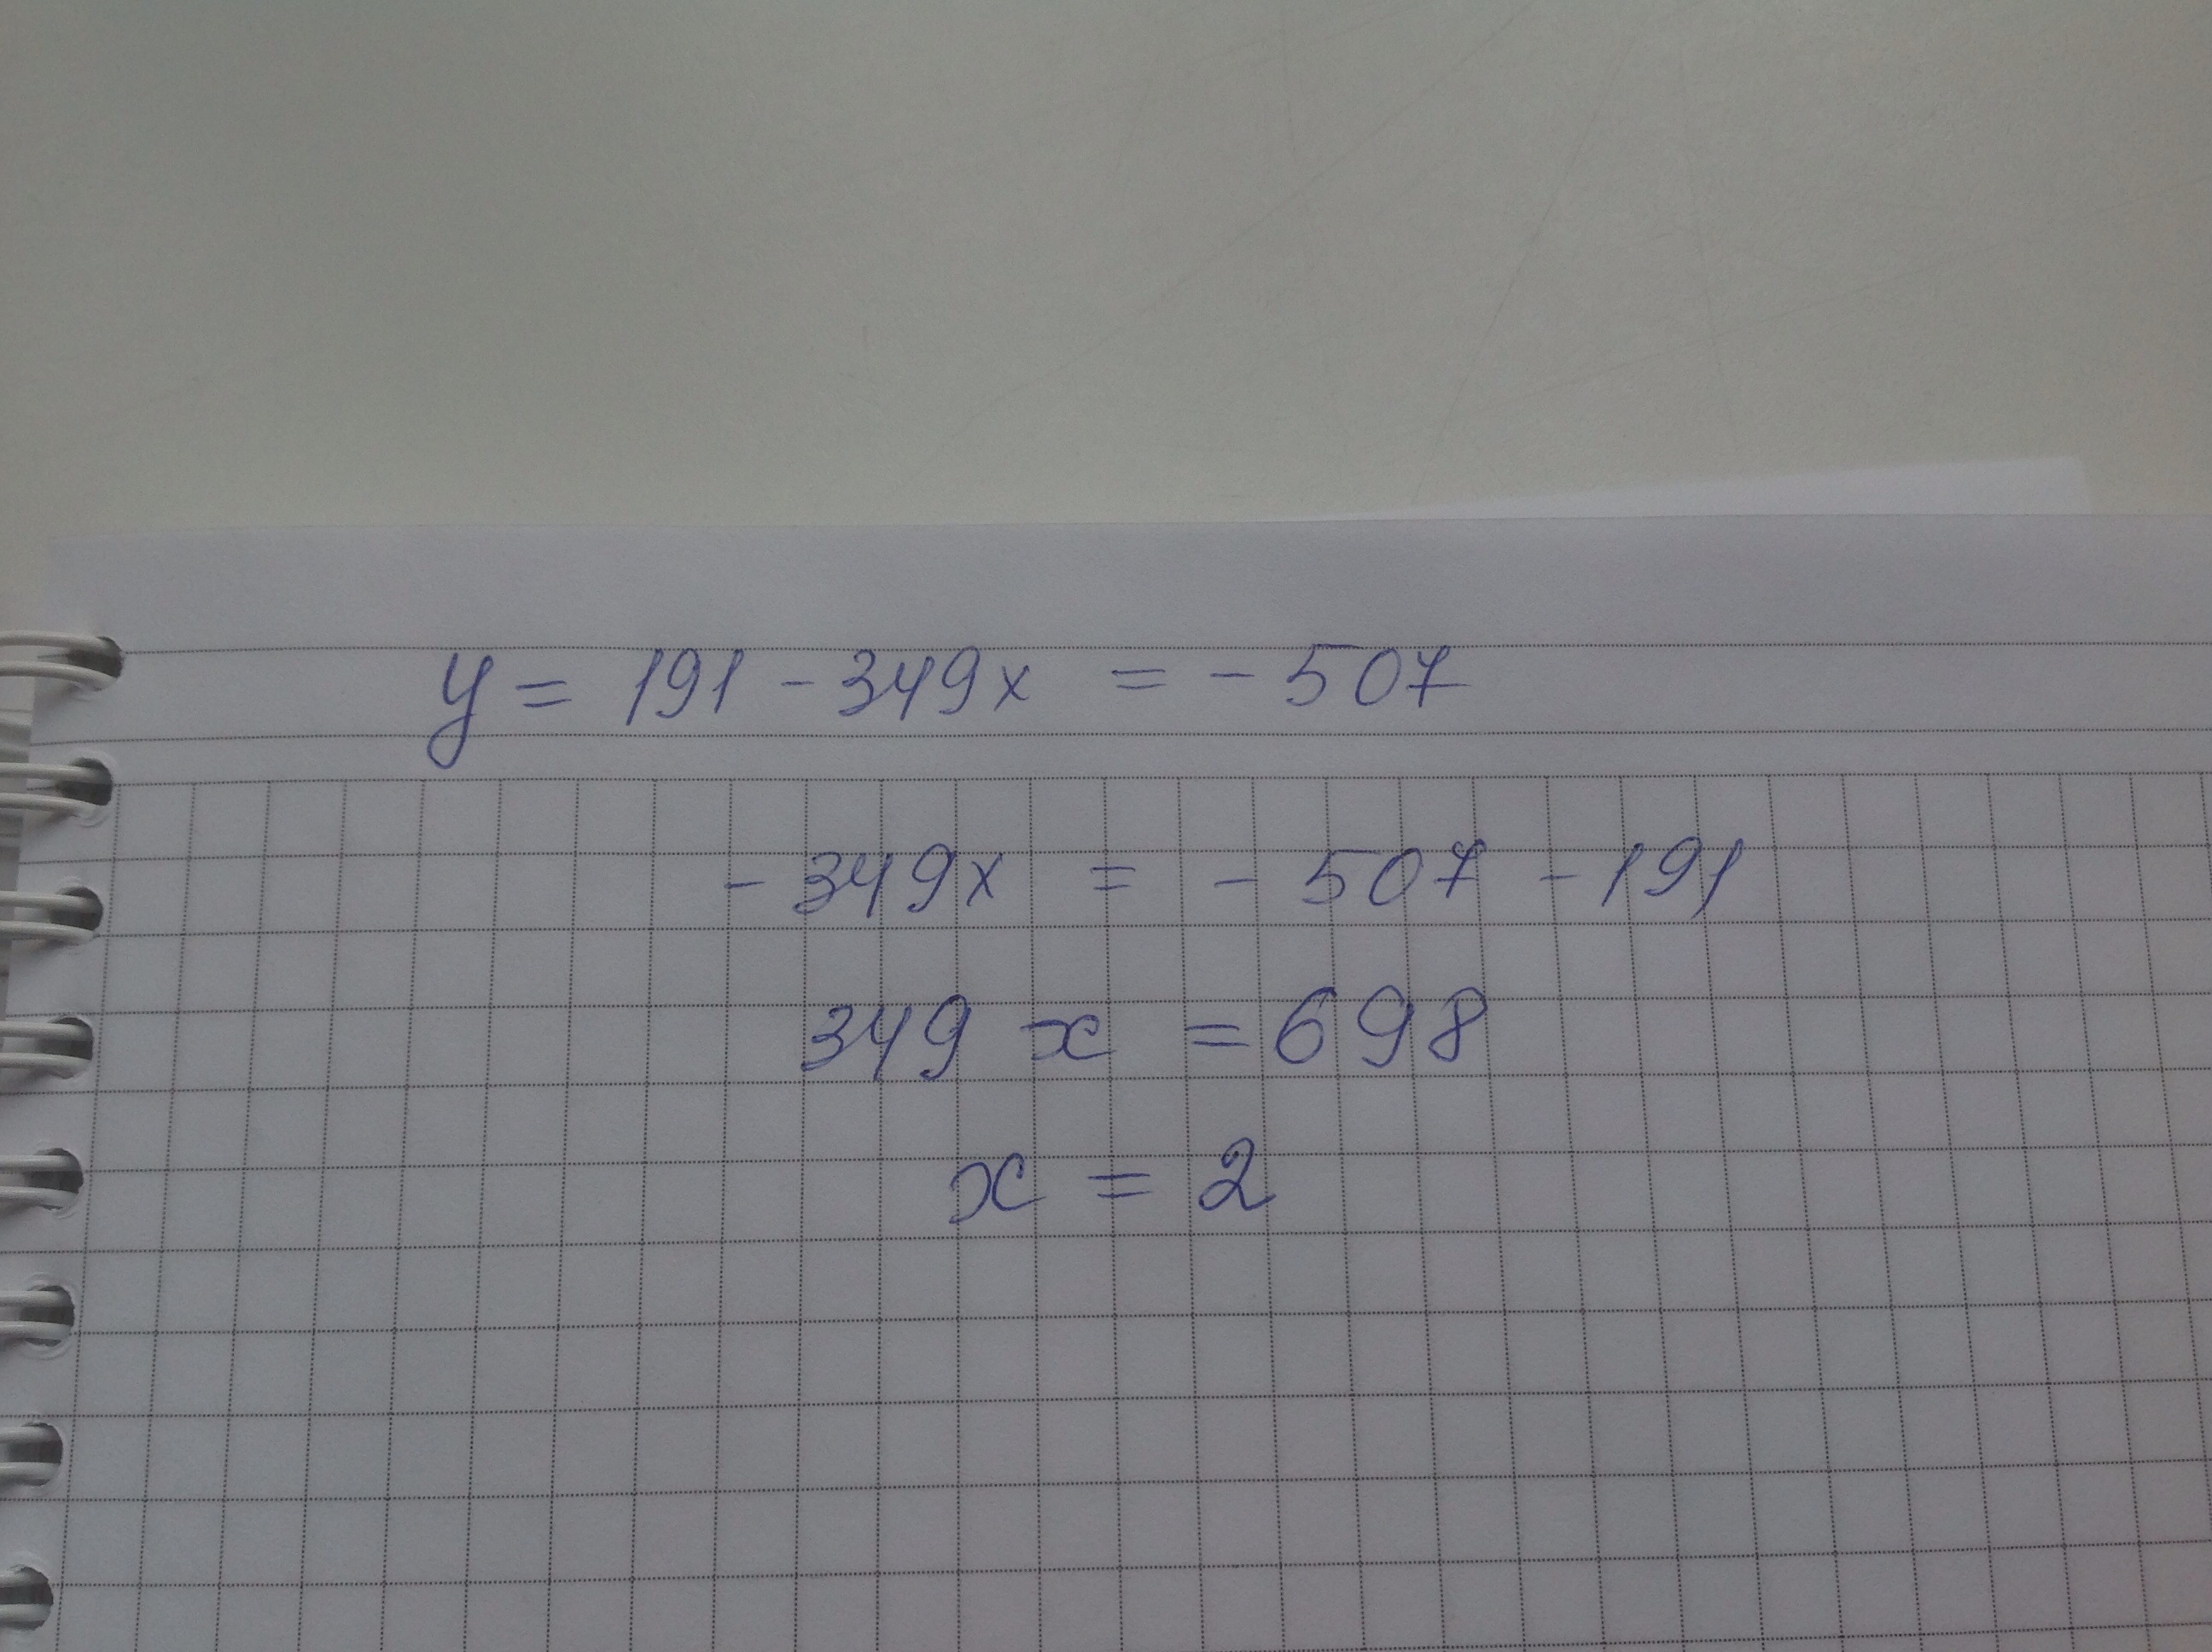 y = 191 - 349x = - 507
- 349x = - 507 - 191
349 x = 698
x = 2